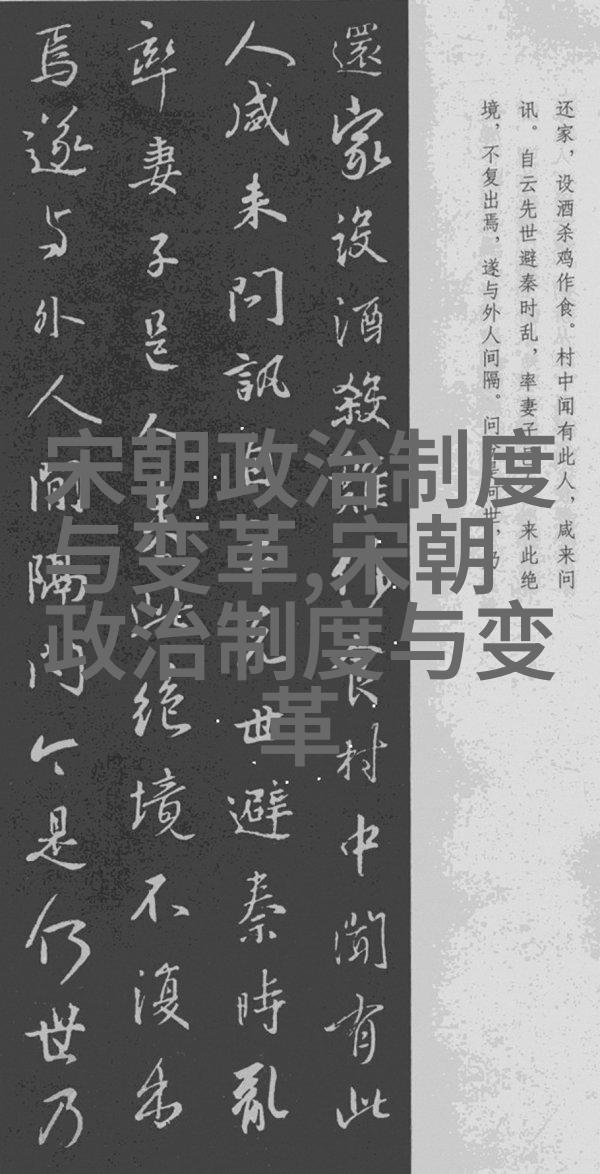 还家，设酒杀鸡作食。村中闻有此人，咸来问
讯。自云先世避秦时乱，率妻子邑 来此绝
境，不复出焉，遂与外人间隔。问今是何世，乃
還家設酒殺雞作食村中聞有此
人咸来問訊自云先世避秦時亂
率妻子邑人来此絶境不復出
焉遂与外人间隔问今是何世乃
宋朝政治制度
与变革,宋朝
政治制度与变
革